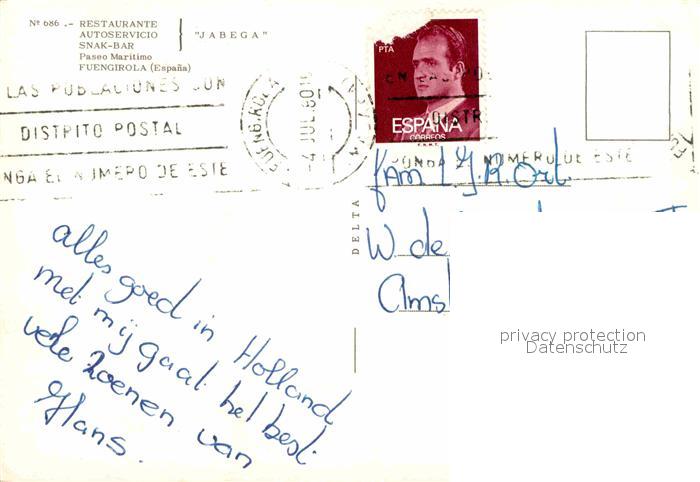 Nº 686 .- RESTAURANTE
AUTOSERVICIO
SNAK-BAR
Paseo Marítimo
FUENGIROLA (España)
"JABEGA"
LAS POBLACIONES CON
DISTRITO POSTAL
NGA EL NUMERO DE ESTE
FUENGIROLA
4 JUL 80
PTA
ESPAÑA
CORREOS
F.N.M.T.
DISTR
PONGA EL NUMERO DE ESTE
DELTA
fam
W de
Ams
privacy protection
Datenschutz
alles goed in Holland
met mij gaat het best
vele zoenen van
Hans.